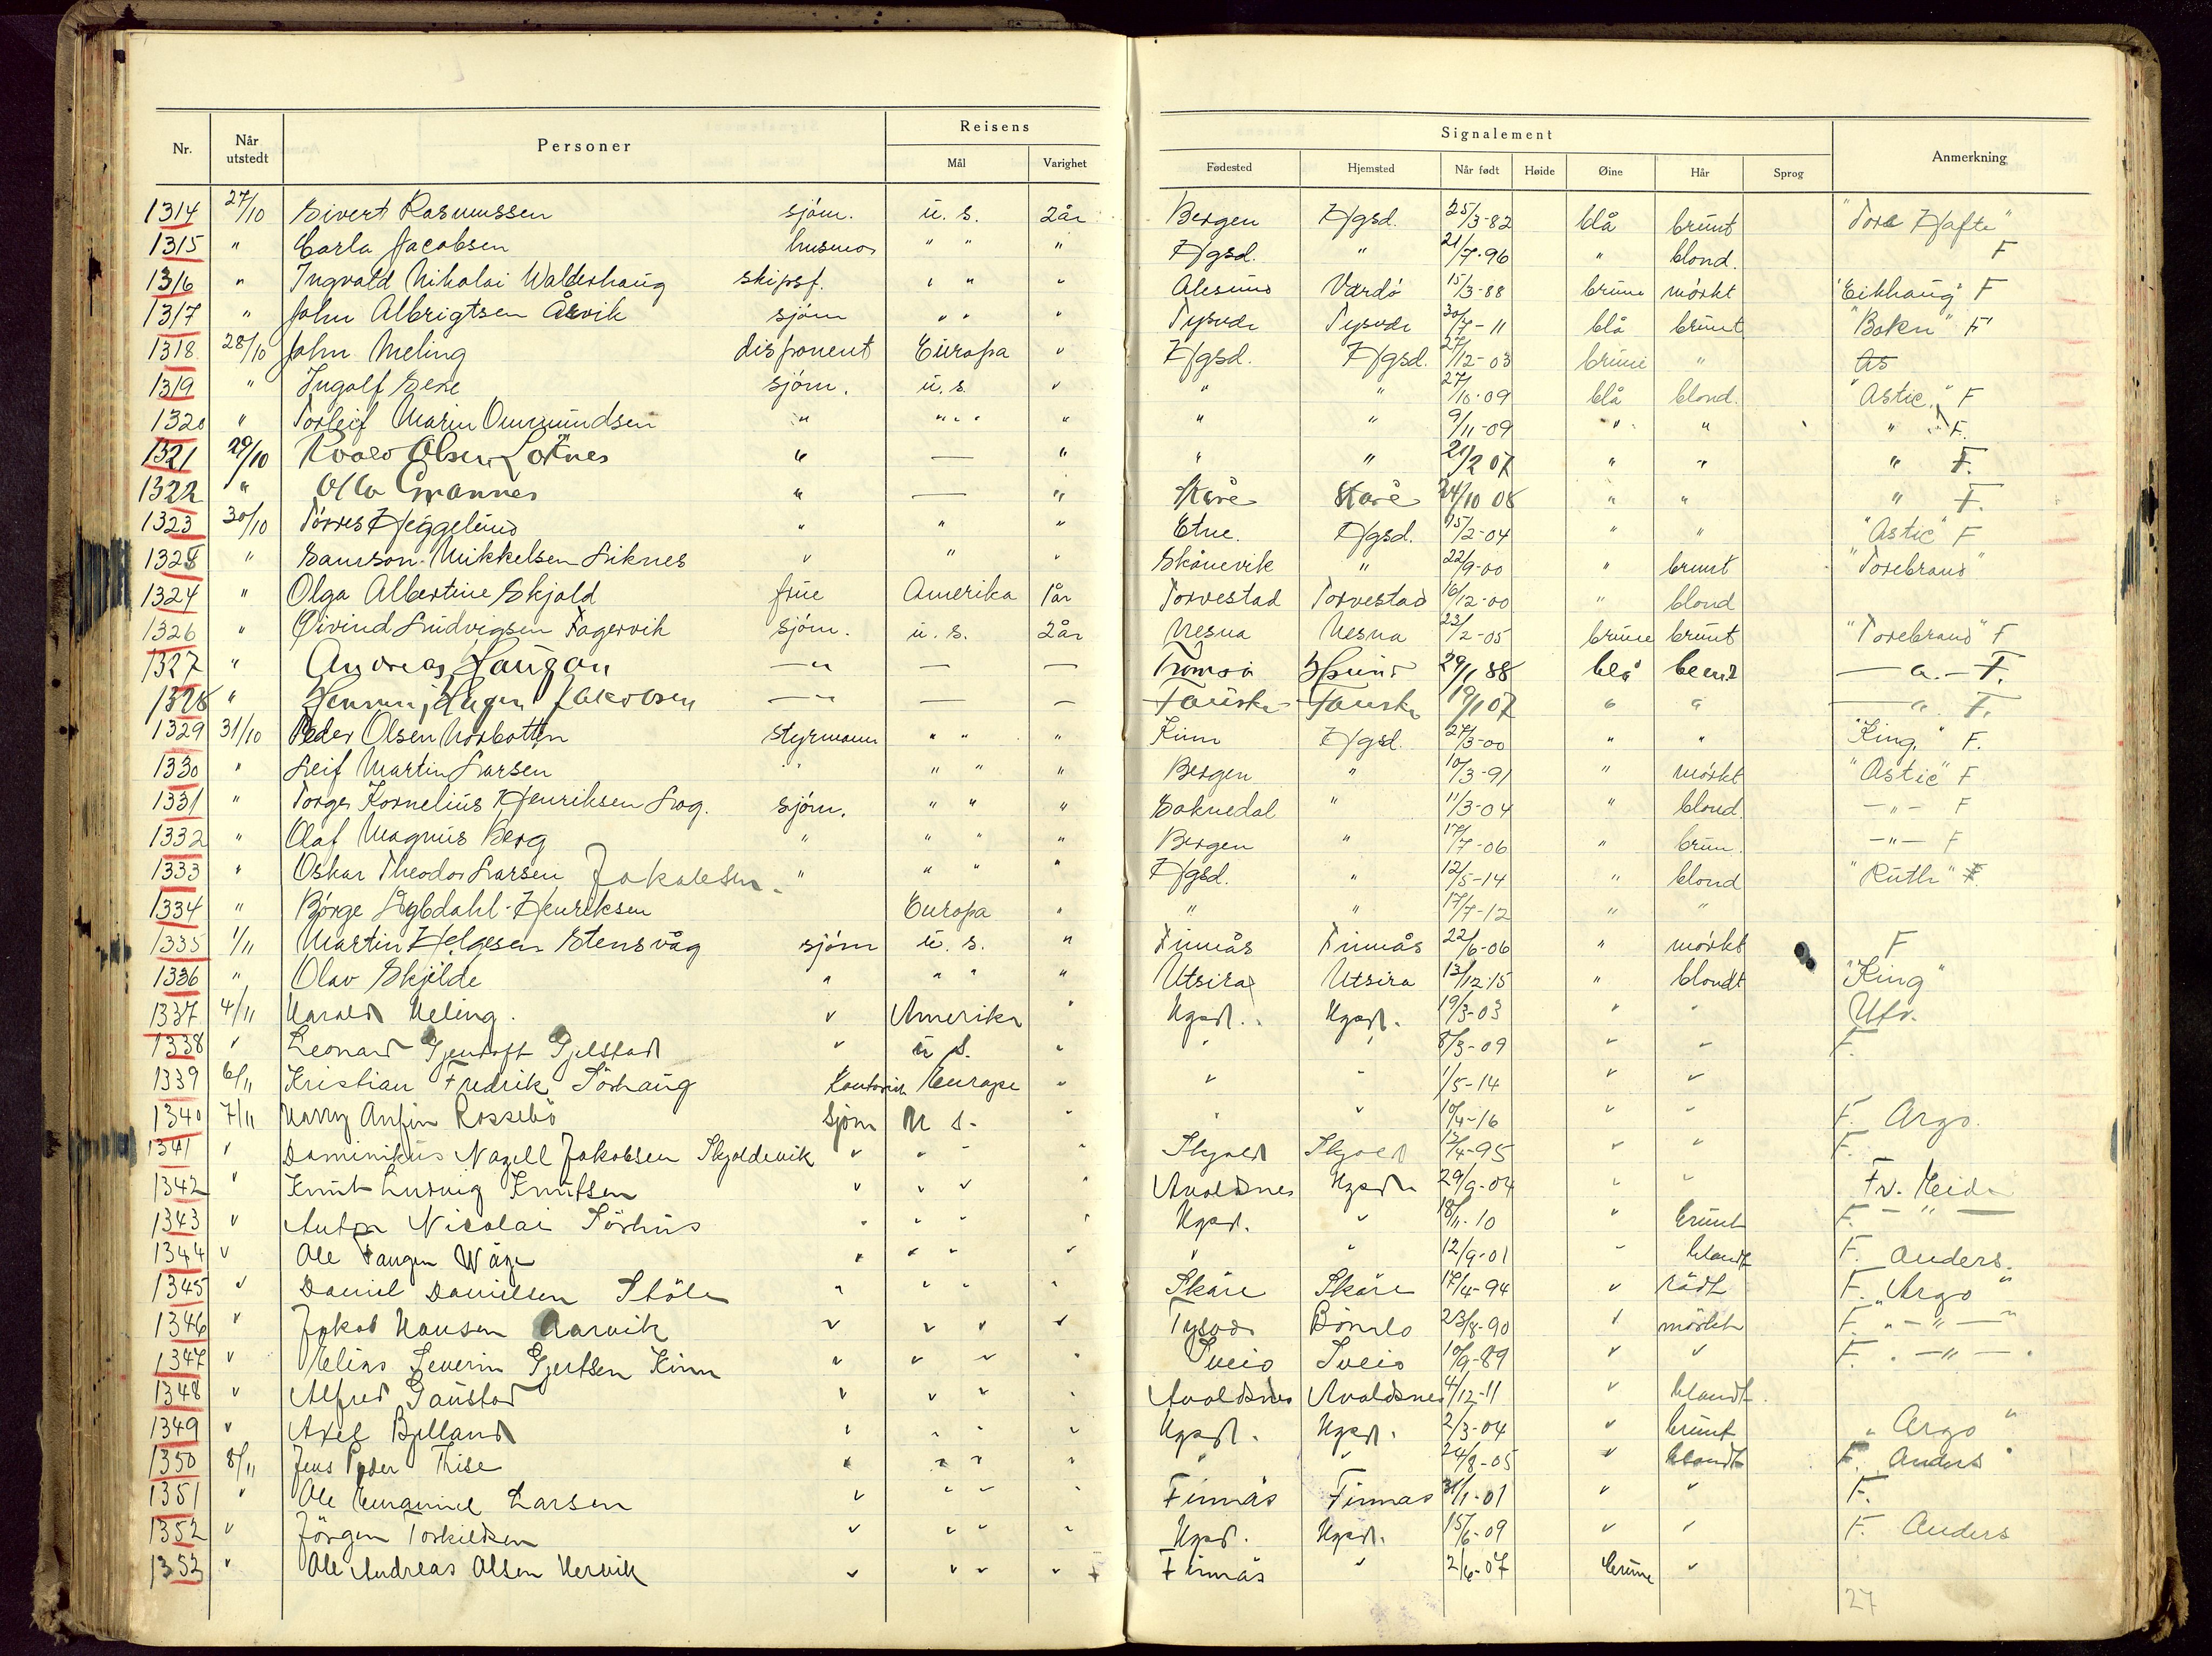 Reisens
Signalement
Nr. Når utstedt Personer Mål Varighet Fødested Hjemsted Når født Høide Øine Hår Sprog Anmerkning
1314 27/10 Sivert Rasmussen sjóm. u. s. 2år Bergen Hgsd. 25/3-82 blå brunt "Tore Hafte"
1315 " Carla Jacobsen husmor " " " Hgsd. " 21/7-96 " blond. F
1316 " Ingvald Nikolai Walderhaug skipsf. " " " Alesund Vardö 15/3-88 brune mörkt "Eikhaug" F
1317 " John Albrigtsen Årvik sjöm " " " Tysvær Tysvær 30/7-11 blå brunt "Bokn" F
1318 28/10 John Meling disponent Europa " Hgsd. Hgsd. 27/12-03 brune " As
1319 " Ingolf Sexe sjöm. u. s. " " " 27/10-09 blå blond. "Astic" F
1320 " Torleif Marin Ommundsen " " " " " " 9/11-09 " " " F.
1321 29/10 Roald Olsen " — " " " 21/2 07 " " " F.
1322 " Olla Grannes " — " Skåre Skåre 24/10 08 " " " F.
1323 30/10 Törres Heggelund " " " Etne. Hgsd. 15/2-04 " " "Astic" F
1325 " Samson Mikkelsen Liknes " " " Skånevik " 22/9-00 " brunt "Torebrand"
1324 " Olga Albertine Skjold frue Amerika 1år Torvestad Torvestad 16/12-00 " blond
1326 " Öivind Ludvigsen Fagervik sjöm. u. s. 2år Nesna Nesna 22/2-05 brune brunt "Torebrand" F
1327 " Andreas Haugan — " — — Tromsö 29/1 88 blå — " — F.
1328 " Henning Hagen Jakobsen — " — — Fauske Fauske 19/1 07 " " — " F.
1329 31/10 Peder Olsen Norbotten styrmann " " " Kinn Hgsd. 27/3-00 " " "King." F.
1330 " Leif Martin Larsen " " " " Bergen " 10/3-91 " mörkt "Astic" F
1331 " Torger Kornelius Henriksen Log. sjöm. " " " Soknedal " 11/3-04 " blond. — " — F
1332 " Olaf Magnus Berg " " " " Bergen " 17/7-06 " brun. — " — F
1333 " Oskar Theodor Larsen Jakobsen. " " " " Hgsd. " 12/5-14 " blond "Ruth" F
1334 " Börge Sybdahl-Henriksen Europa " " " 17/7-12 " "
1335 1/11 Martin Helgesen Stensvåg sjöm u. s. " Finnås Finnås 22/6-06 " mörkt F
1336 " Olav Skjelde " " " " Utsira Utsira 13/12-15 " blondt "King"
1337 4/11 Harald Meling. " Amerika " Hgsd. Hgsd. 19/3-03 " " Utv.
1338 " Leonard Gjentoft Gjelstad " u s. " " " 8/3-09 " " F.
1339 6/11 Kristian Fredrik Sörhaug Kontorist Europa " " " 1/5-14 " "
1340 7/11 Harry Anfin Rossebö Sjöm U s. " " " 10/4-16 " " F. Argo.
1341 " Dominikus Nagell Jakobsen Skjoldevik " " " " Skjold Skjold 13/4-95 " " F.
1342 " Knut Ludvig Knutsen " " " " Avaldsnes Hgsd. 29/9-04 " " Fv. Heida
1343 " Anton Nicolai Sörhus " " " " Hgsd. " 18/11-10 " brunt F. — " —
1344 " Ole Vaage " " " " " " 12/9-01 " blondt F. Anders.
1345 " Daniel Danielsen Stöle " " " " Skåre Skåre 17/4-94 " rödt F. "Argo"
1346 " Jakob Hansen Aarvik " " " " Tysvær Bömlo 23/8-90 " mörkt F. " — " — "
1347 " Elias Severin Gjertsen Kinn " " " " Sveio Sveio 10/9-89 " " F. " — " — "
1348 " Alfred Gaustad " " " " Avaldsnes Avaldsnes 4/12-11 " blondt.
1349 " Axel Bjelland " " " " Hgsd. Hgsd. 2/3-04 " brunt "Argo"
1350 8/11 Jens Peder Thise " " " " " " 24/8-05 " blondt F. Anders "
1351 " Ole Emanuel Larsen " " " " Finnås Finnås 31/1-01 " " F.
1352 " Jörgen Torkildsen " " " " Hgsd. Hgsd. 15/6-09 " " F. Anders
1352 " Ole Andreas Olsen Hervik " " " " Finnås " 2/6-07 brune "
27